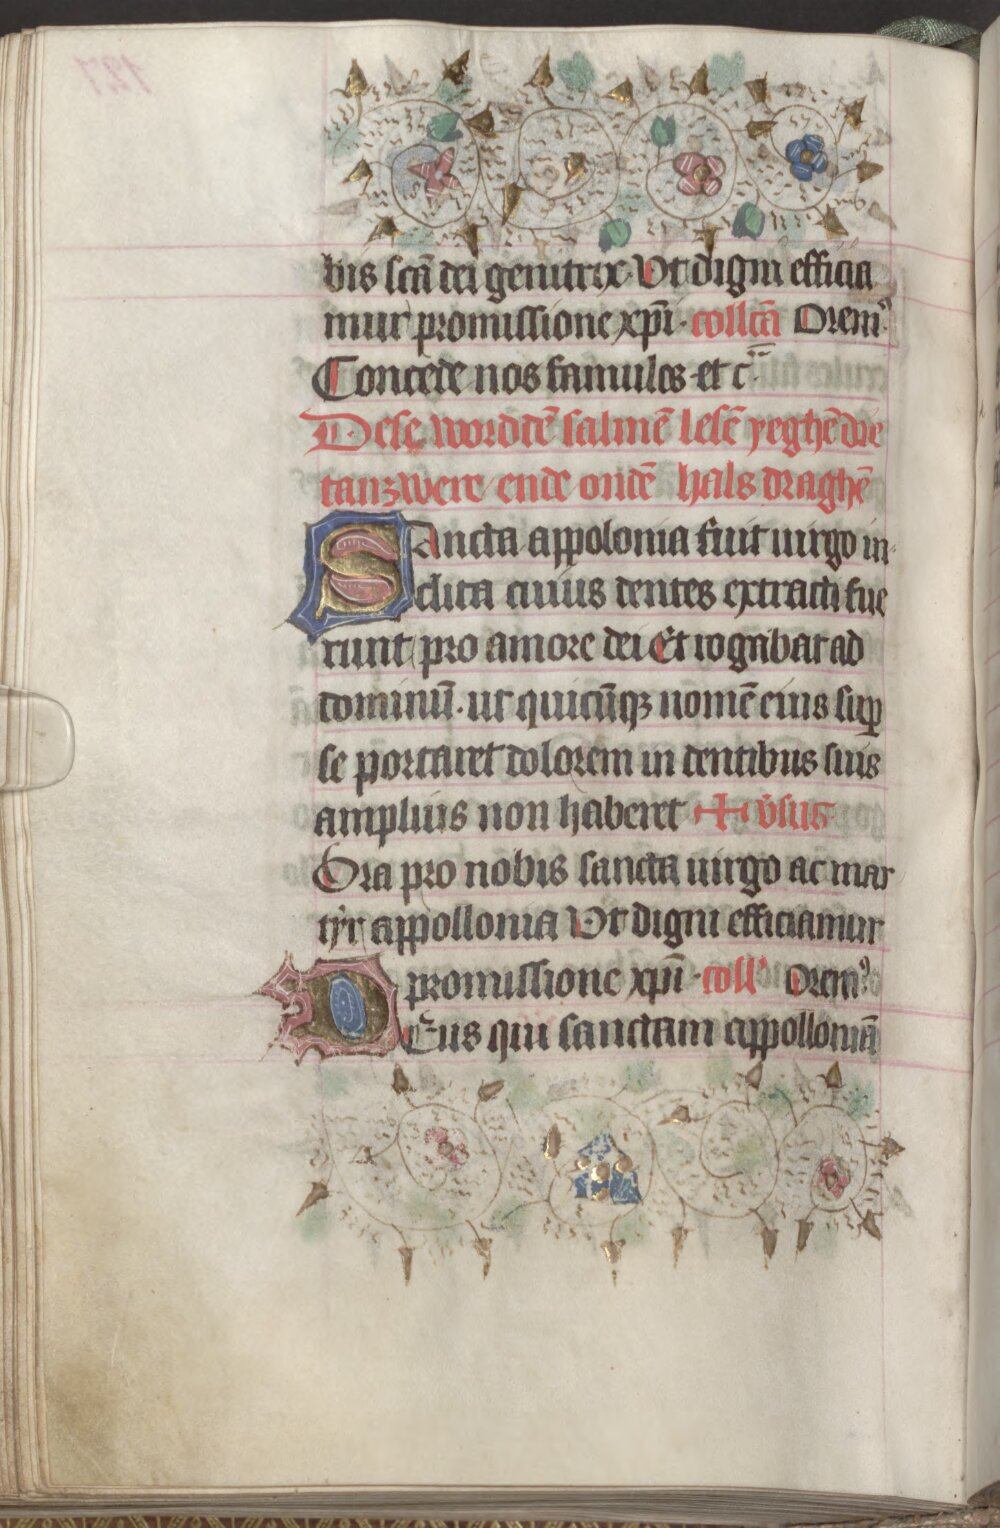 bis scā dei genitrix Vt digni efficia
mur promissione xpī · collcā Oremꝰ
Concede nos famulos · et c̄
Dese wordē salmē lesē yeghē die
tanzwere ende ondē hals draghē
Sancta appolonia fuit uirgo in
clita cuius dentes extracti fue
runt pro amore dei Et rogabat ad
dominū · ut quicūqꝫ nomē eius suꝑ
se portaret dolorem in dentibus suis
amplius non haberet ✠ v̄sus
Ora pro nobis sancta uirgo ac mar
tyr appollonia Vt digni efficiamur
promissione xpī · coll' Oremꝰ
DEus qui sanctam appolloniā